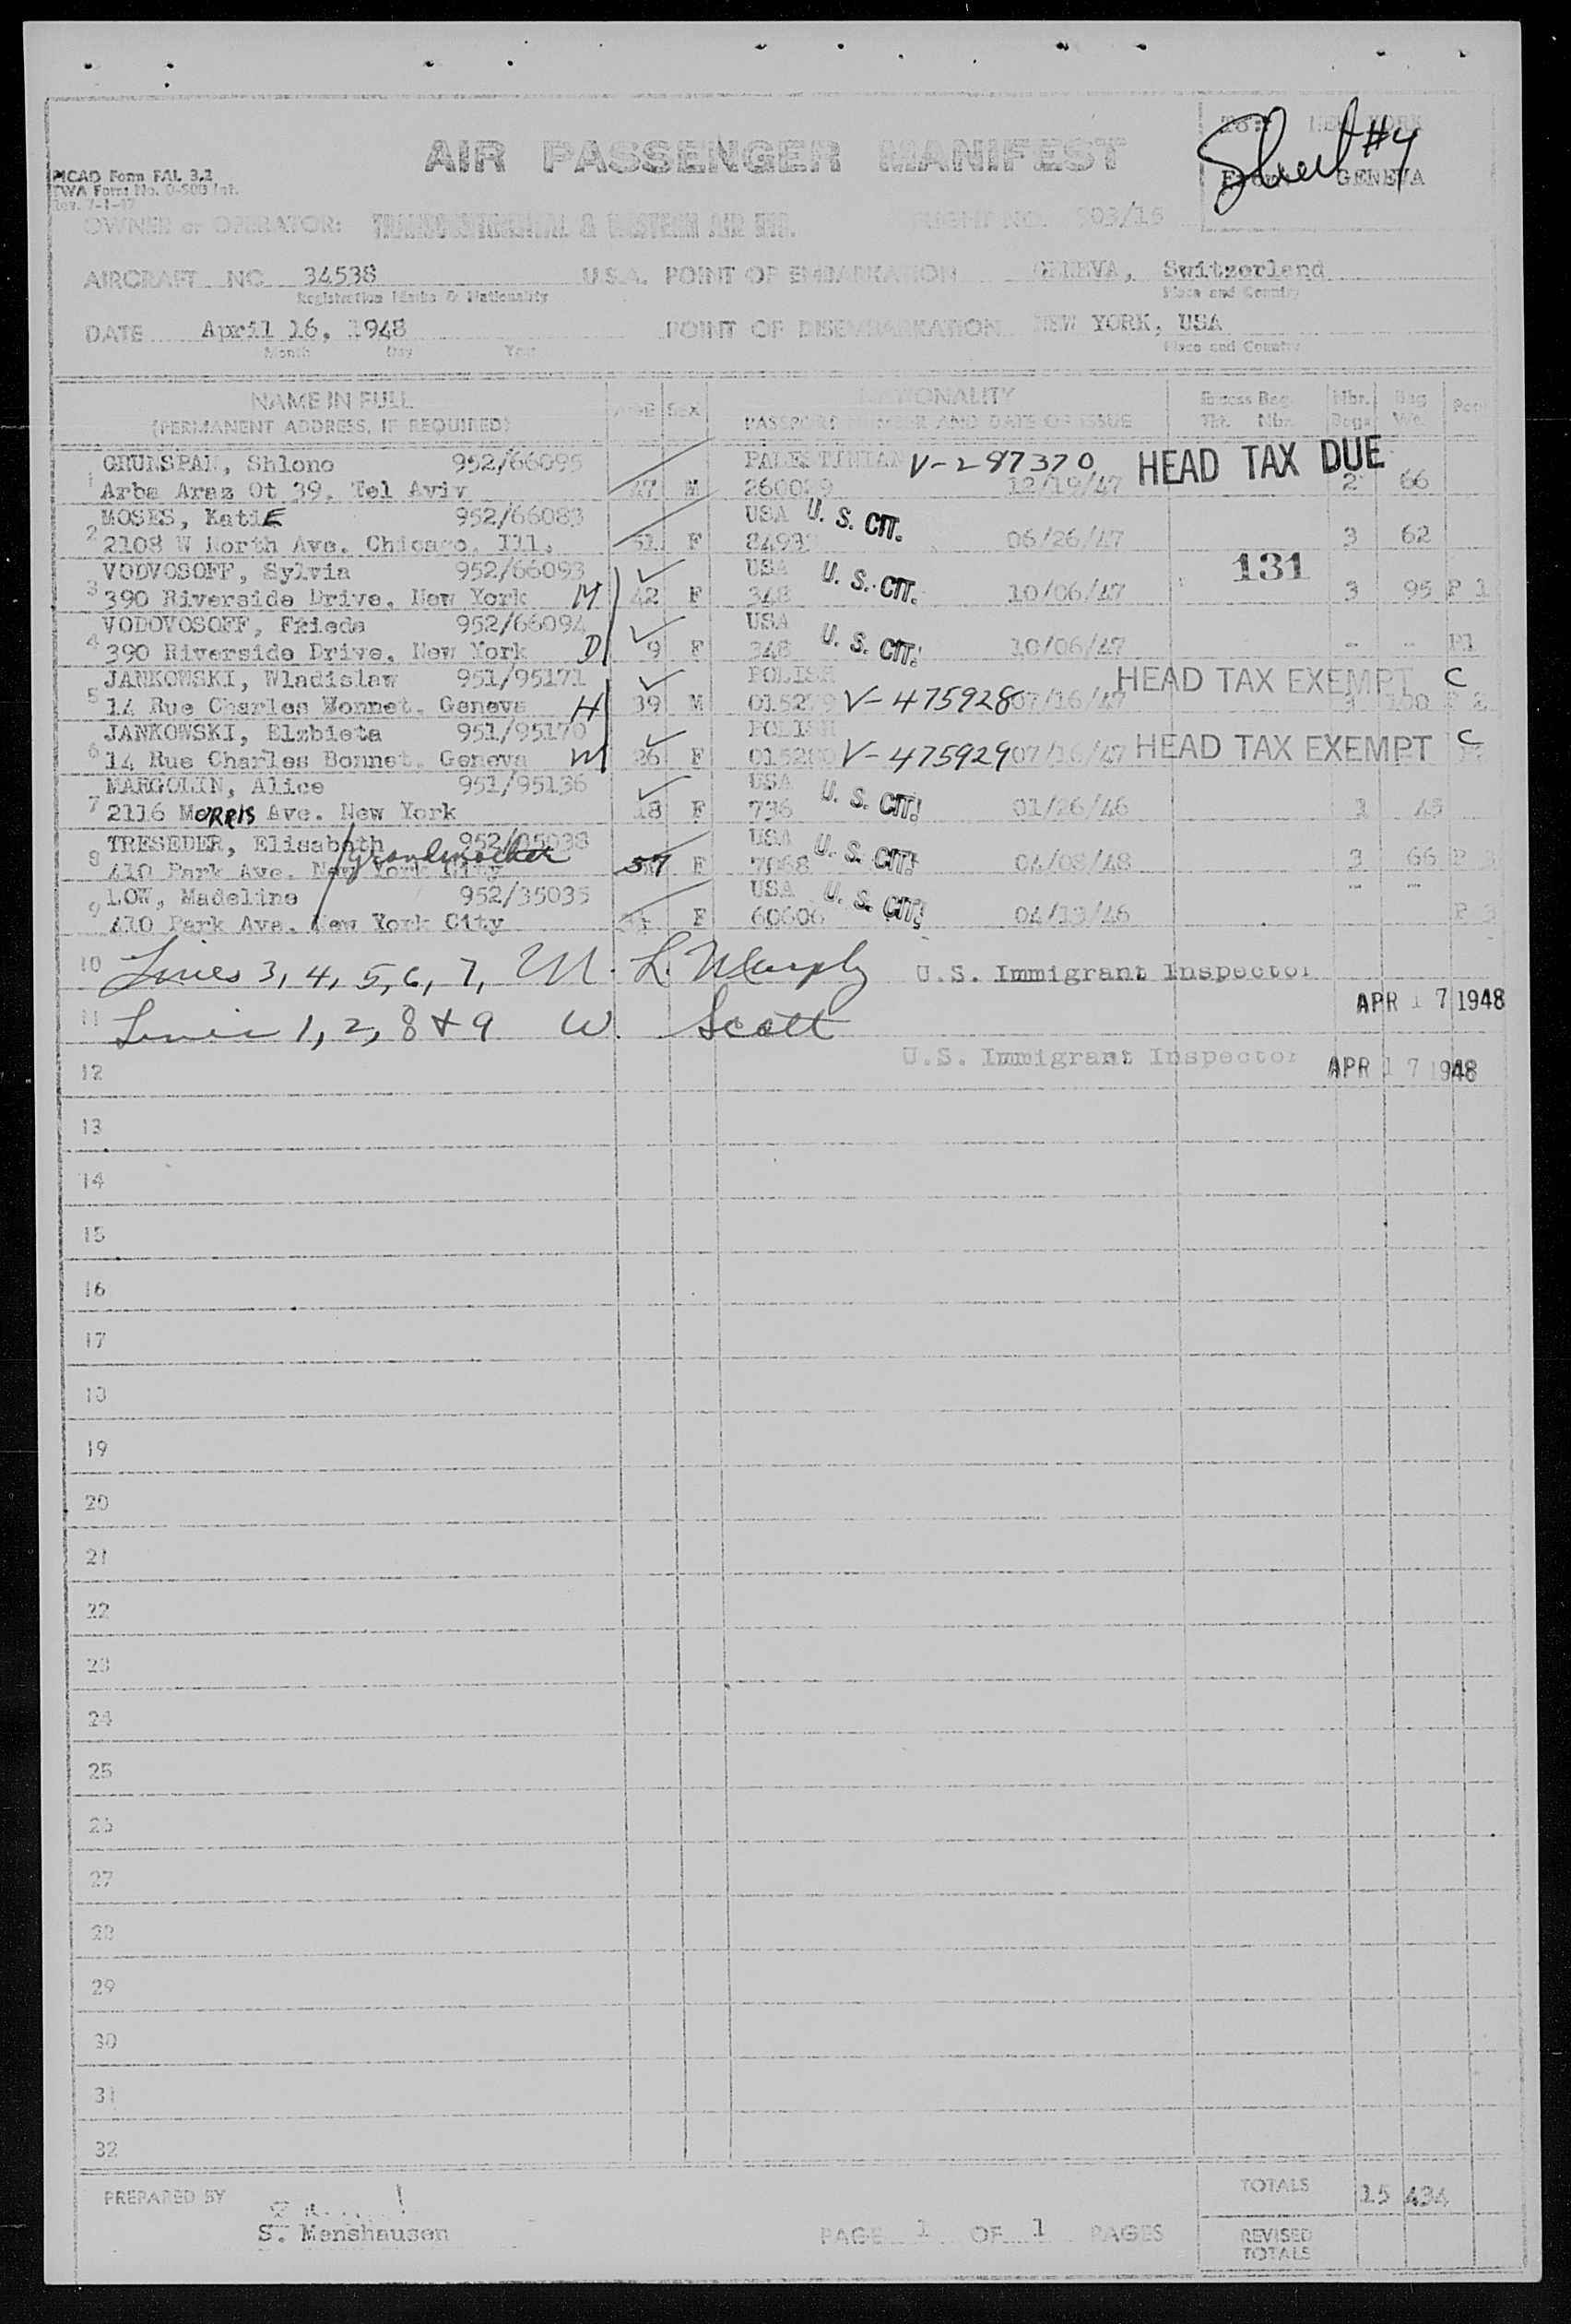 To: NEW YORK
Sheet #4
AIR PASSENGER MANIFEST
PICAO Form FAL 3.2
TWA Form No. 0-500 Int.
From: GENEVA
OWNER or OPERATOR: TRANSCONTINENTAL & WESTERN AIR INC. FLIGHT NO. 903/16
AIRCRAFT NC 34538 U.S.A. POINT OF EMBARKATION GENEVA, Switzerland
Registration Marks & Nationality Place and Country
DATE April 16, 1948 POINT OF DISEMBARKATION NEW YORK, USA
Month Day Year Place and Country
NAME IN FULL AGE SEX NATIONALITY Excess Bag. Nbr. Bag
(PERMANENT ADDRESS, IF REQUIRED) PASSPORT NUMBER AND DATE OF ISSUE Tkt. Nbr. Bags Wt.
1 GRUNSPAN, Shlomo 952/66095 PALESTINIAN V-287370 HEAD TAX DUE
Arba Araz Ot 39, Tel Aviv 47 M 12/19/47 2 66
2 MOSES, KatiE 952/66083 USA U. S. CIT.
2108 W North Ave. Chicago, Ill. 51 F 06/26/47 3 62
3 VODVOSOFF, Sylvia 952/66093 USA U. S. CIT. 131
390 Riverside Drive, New York M 42 F 348 10/06/47 3 95 P 1
4 VODOVOSOFF, Frieda 952/66094 USA U. S. CIT.
390 Riverside Drive, New York D 9 F 348 10/06/47 - - P1
5 JANKOWSKI, Wladislaw 951/95171 POLISH HEAD TAX EXEMPT C
14 Rue Charles Bonnet, Geneva H 39 M V-475928 07/16/47 3 100 P 2
6 JANKOWSKI, Elzbieta 951/95170 POLISH
14 Rue Charles Bonnet, Geneva W 26 F V-475929 07/16/47 HEAD TAX EXEMPT C
7 MARGOLIN, Alice 951/95136 USA U. S. CIT.
2116 MORRIS Ave. New York 18 F 736 01/26/46 1 45
8 TRESEDER, Elisabeth USA U. S. CIT.
410 Park Ave. New York City grandmother 57 F 7068 04/08/48 3 66 P 3
9 LOW, Madeline 952/35035 USA U. S. CIT. - -
410 Park Ave. New York City F 60606 04/13/46 P 3
10 Lines 3, 4, 5, 6, 7, M. L. Murphy U.S. Immigrant Inspector
APR 17 1948
11 Lines 1, 2, 8 & 9 W. Scott
U.S. Immigrant Inspector APR 17 1948
12
13
14
15
16
17
18
19
20
21
22
23
24
25
26
27
28
29
30
31
32
PREPARED BY TOTALS 15 434
S. Menshausen
PAGE 1 OF 1 PAGES REVISED
TOTALS